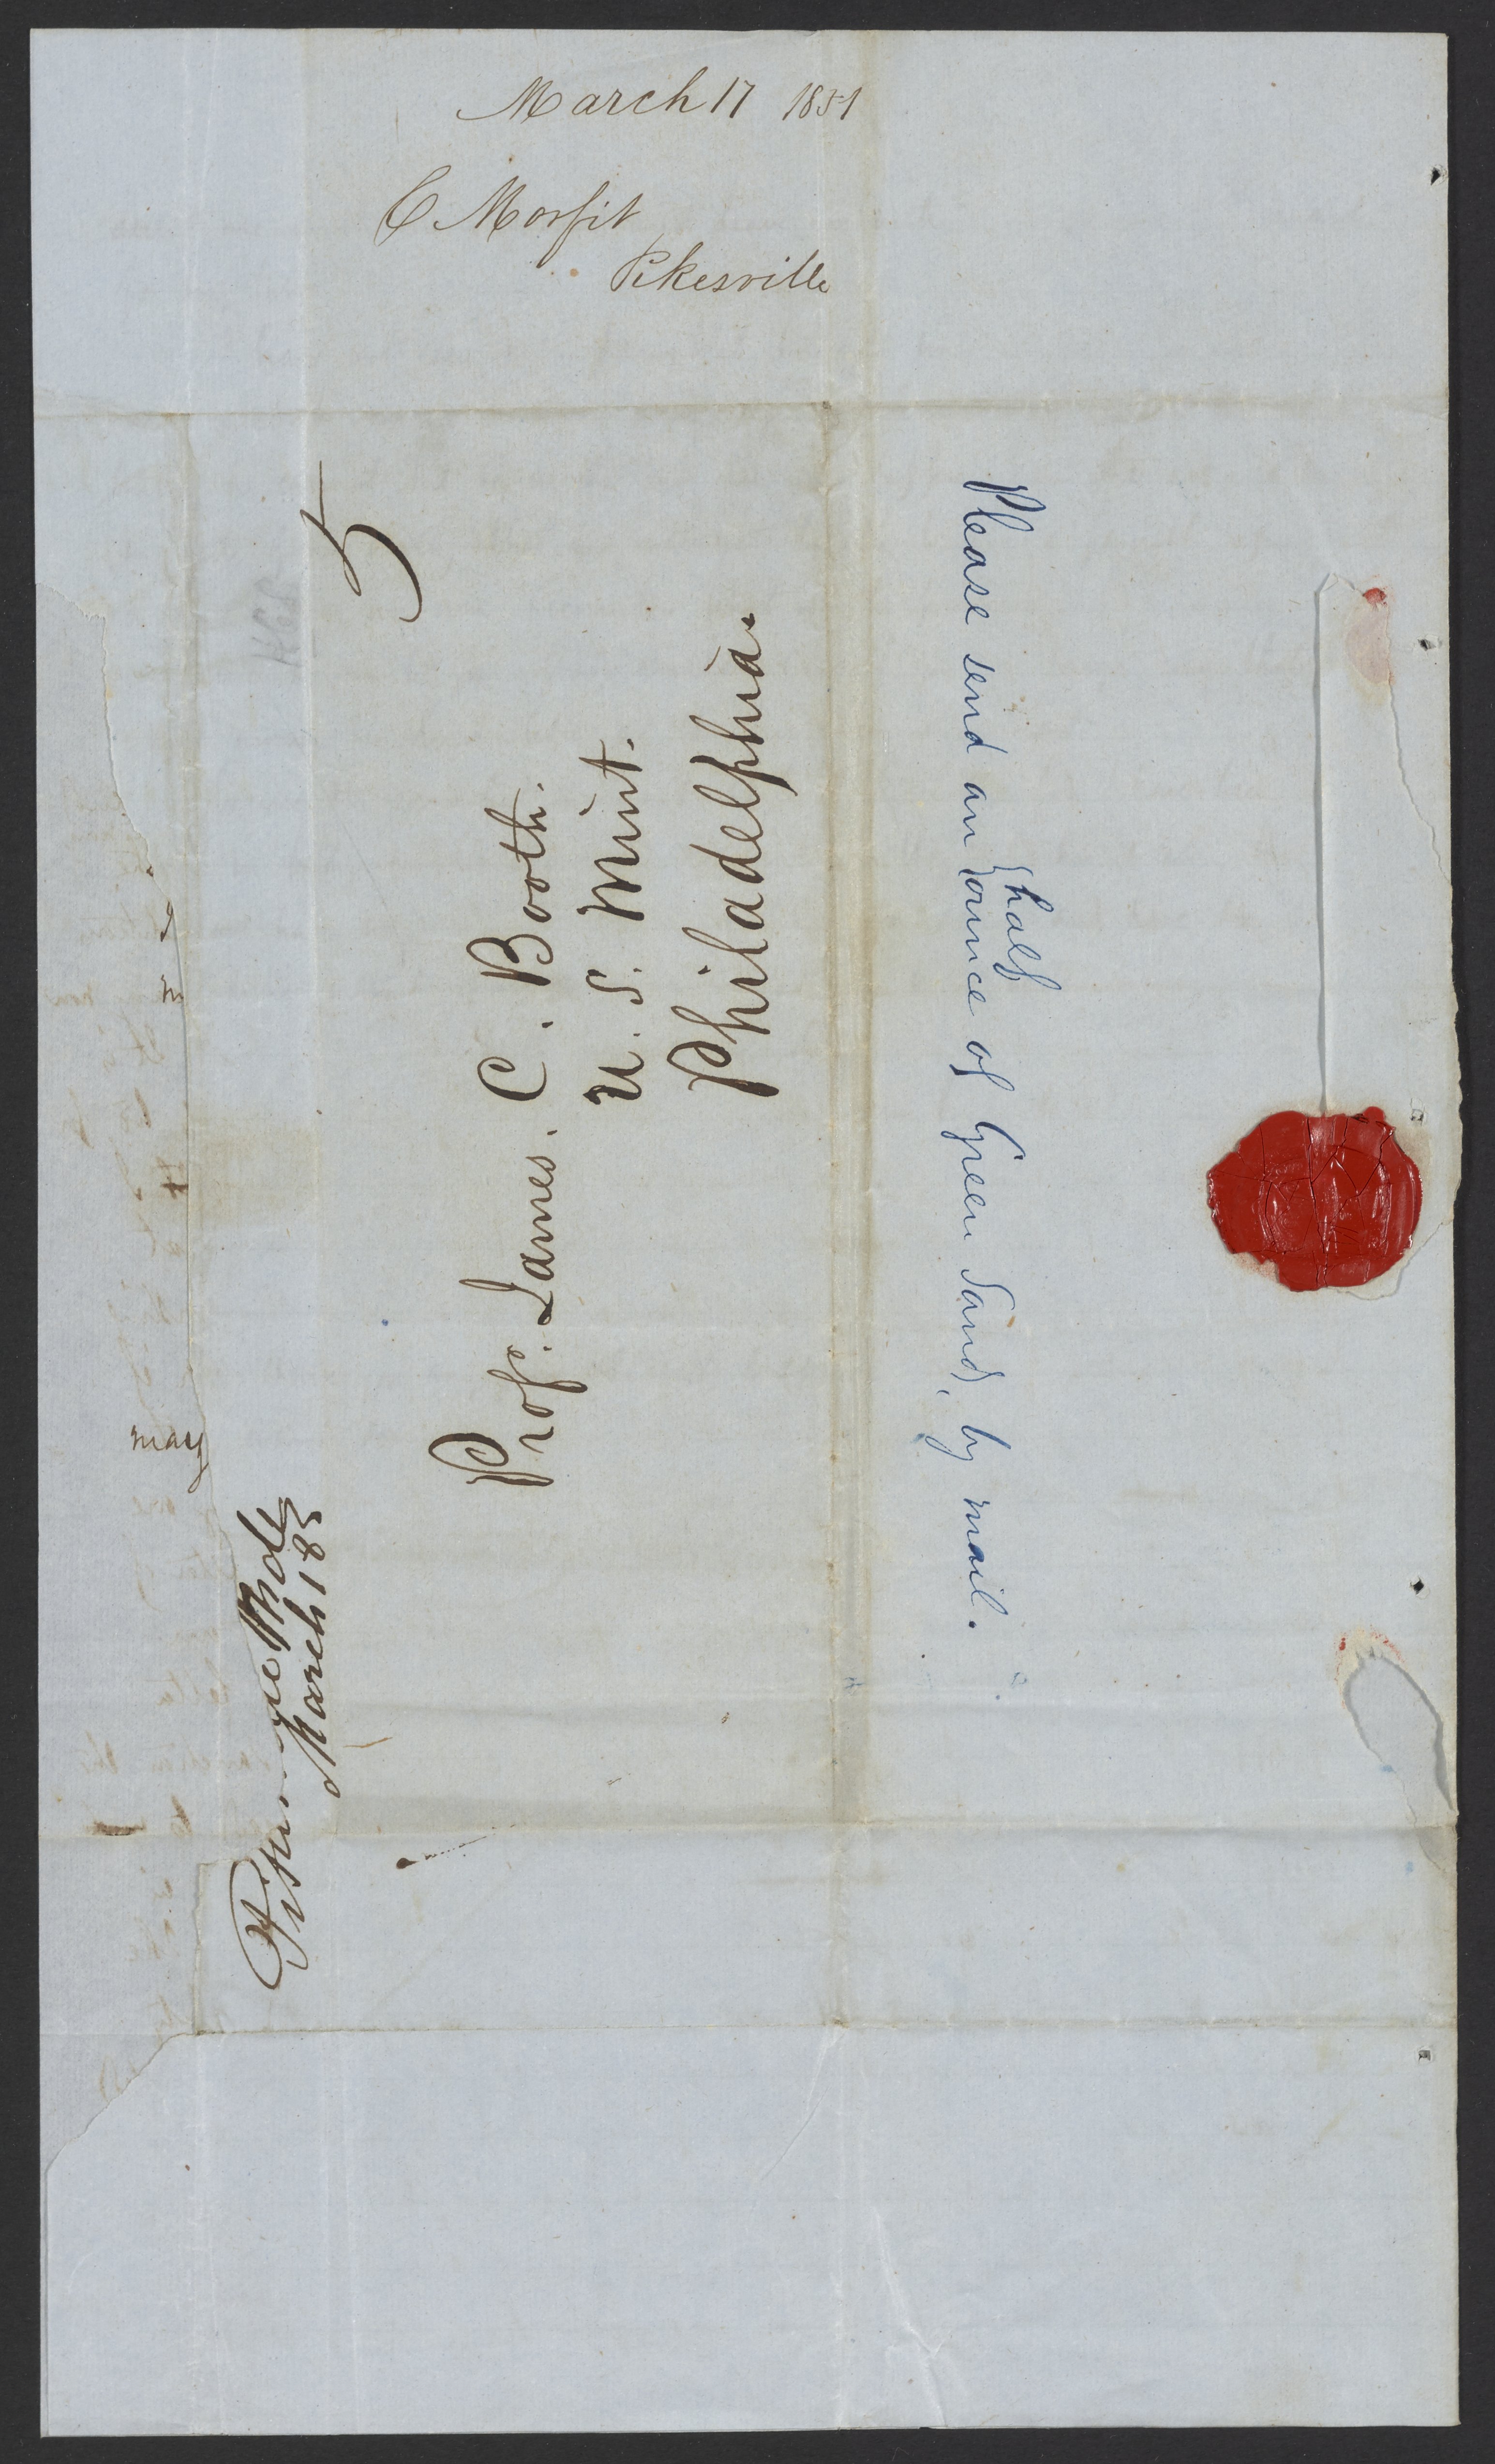 March 17 1851
C Morfit
Pikesville
5
Prof. James. C. Booth.
U. S. Mint.
Philadelphia.
Md
March 18
Please send an half ounce of Green Sand, by mail.
may